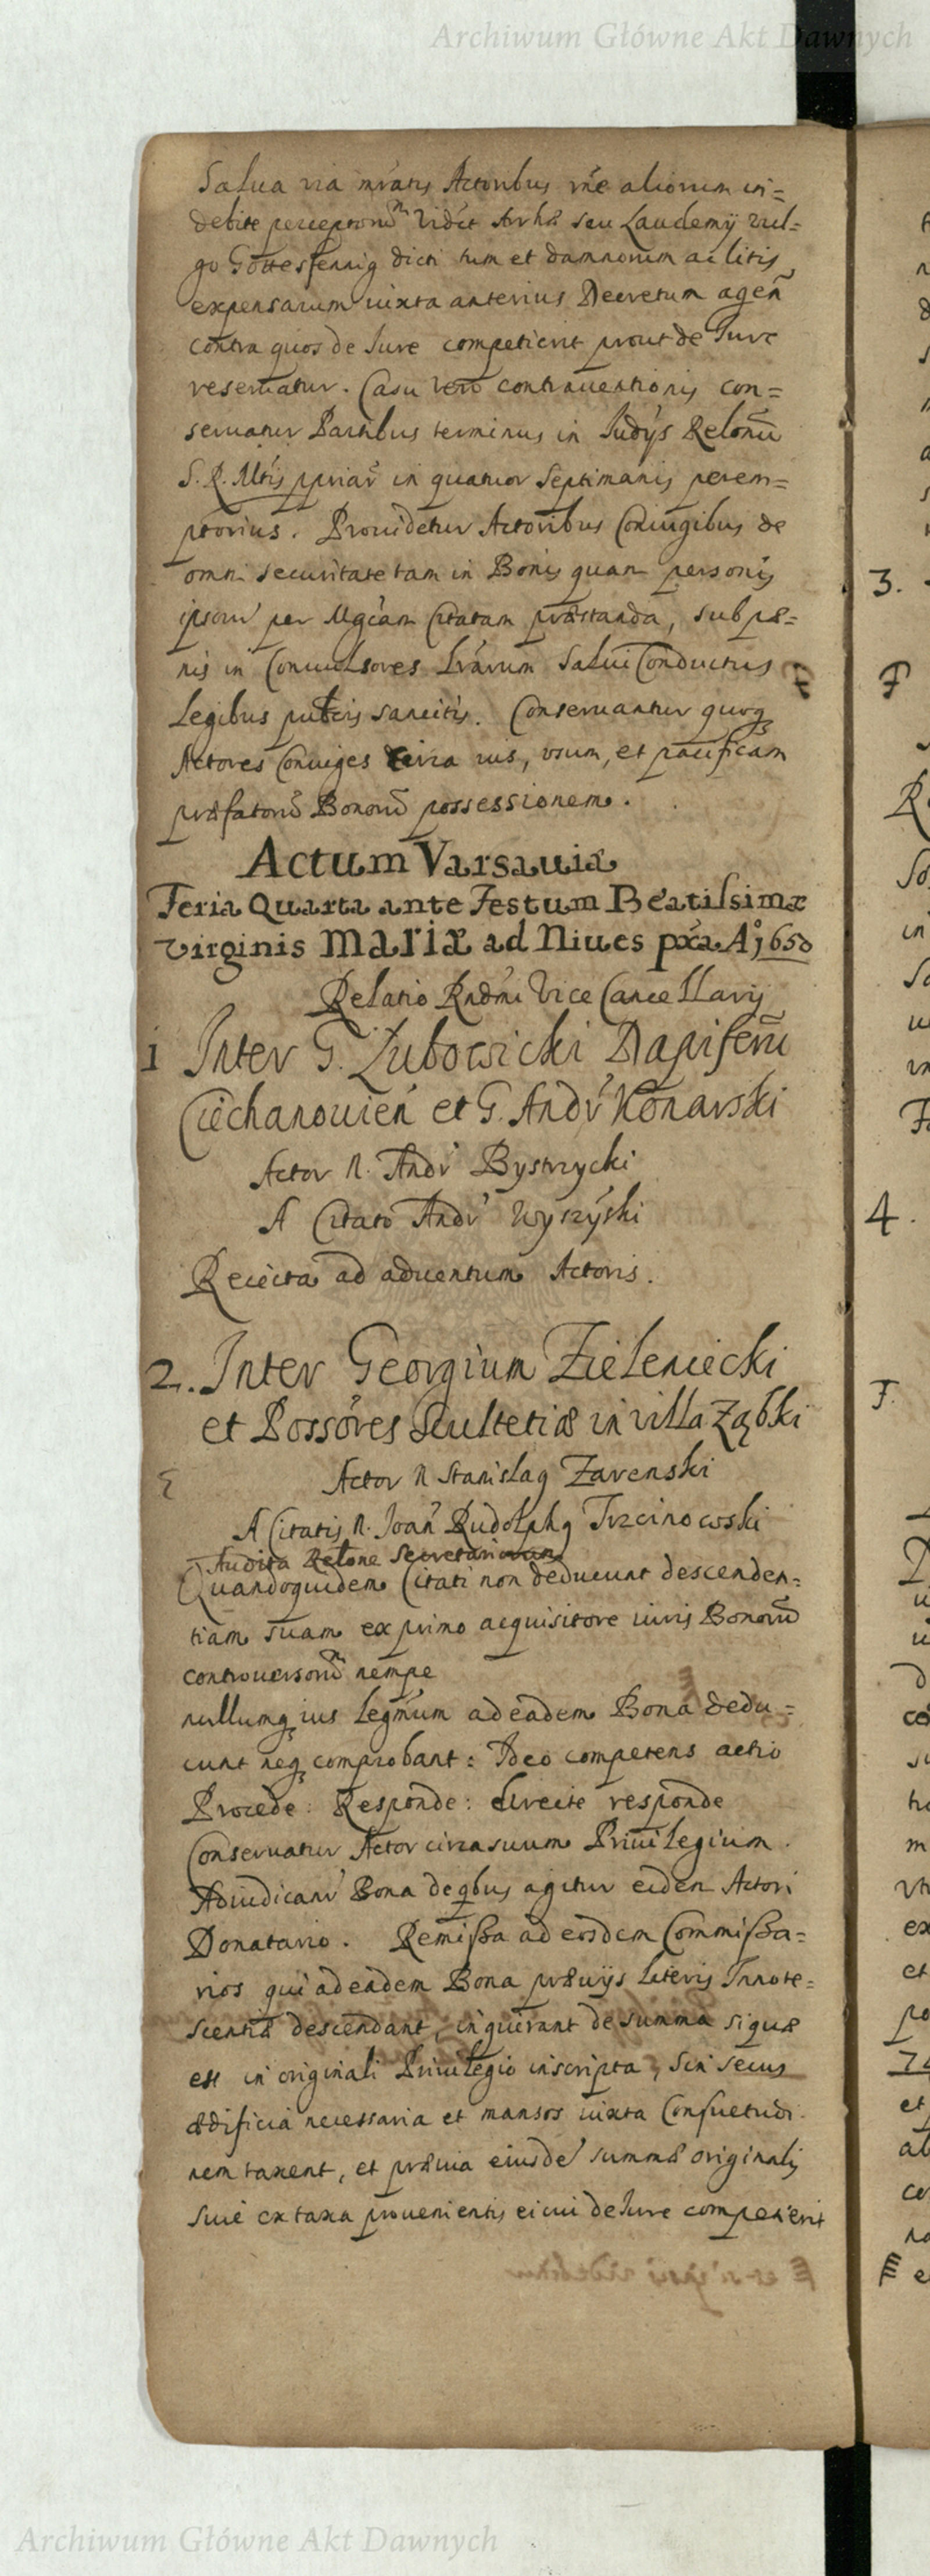 Archiwum Główne Akt Dawnych
Salua via iuratis Actoribus rñe aliorum in=
debite perceptorum Vidct Arhæ seu Laudemij vul=
go Gottesfennig dicti tum et damnorum ac litis
expensarum iuxta anterius Decretum agen
contra quos de Iure competierit prout de Iure
reseruatur. Casu vero contrauentionis con=
seruatur Partibus terminus in Iudijs Relonũ
S. R. Mtis ppriar in quatuor Septimanis perem=
ptorius. Prouidetur Actoribus Coniugibus de
omni securitate tam in Bonis quam personis
ipsoru per Mgcam Citatam præstanda, sub pæ=
nis in Conuulsores Lrarum Salui Conductus
Legibus publcis sancitis. Conseruantur quoq
Actores Coniuges circa ius, vsum, et pacificam
præfatorũ Bonorũ possessionem.
Actum Varsauiæ
Feria Quarta ante Festum Beatissimæ
Virginis Mariæ ad Niues pxa Ao 1650
Relatio Rndmi Vice Cancellarij
1 Inter G. Zubowicki Dapiferũ
Ciechanouien et G. Andr Konarski
Actor N. Andr Bystrzycki
A Citato Andr Wyszyski
Reiecta ad aduentum Actoris.
2. Inter Georgium Zieleniecki
et Possores Scultetiæ in villa Ząbki
Actor N Stanislaq Zarenski
A Citatis N. Joan Rudolphq Trzcinowski
Audita Relone Secretariorum
Quandoquidem Citati non deducunt descenden=
tiam suam ex primo acquisitore iuris Bonorũ
controuersorũ nempe
nullumq ius legmum ad eadem Bona dedu=
cunt neq comprobant: Ideo competens actio
Procede: Responde: directe responde
Conseruatur Actor circa suum Priuilegium.
Adiudicanr Bona de qbus agitur eidem Actori
Donatario. Remissa ad eosdem Commissa=
rios qui ad eadem Bona præuijs literis Innote=
scentiæ descendant, inquirant de summa si quæ
est in originali Priuilegio inscripta, sin secus
ædificia necessaria et mansos iuxta Consuetudi=
nem taxent, et præuia eiusde summæ originalis
siue ex taxa prouenientis ei cui de Iure competierit
3.
4.
Archiwum Główne Akt Dawnych